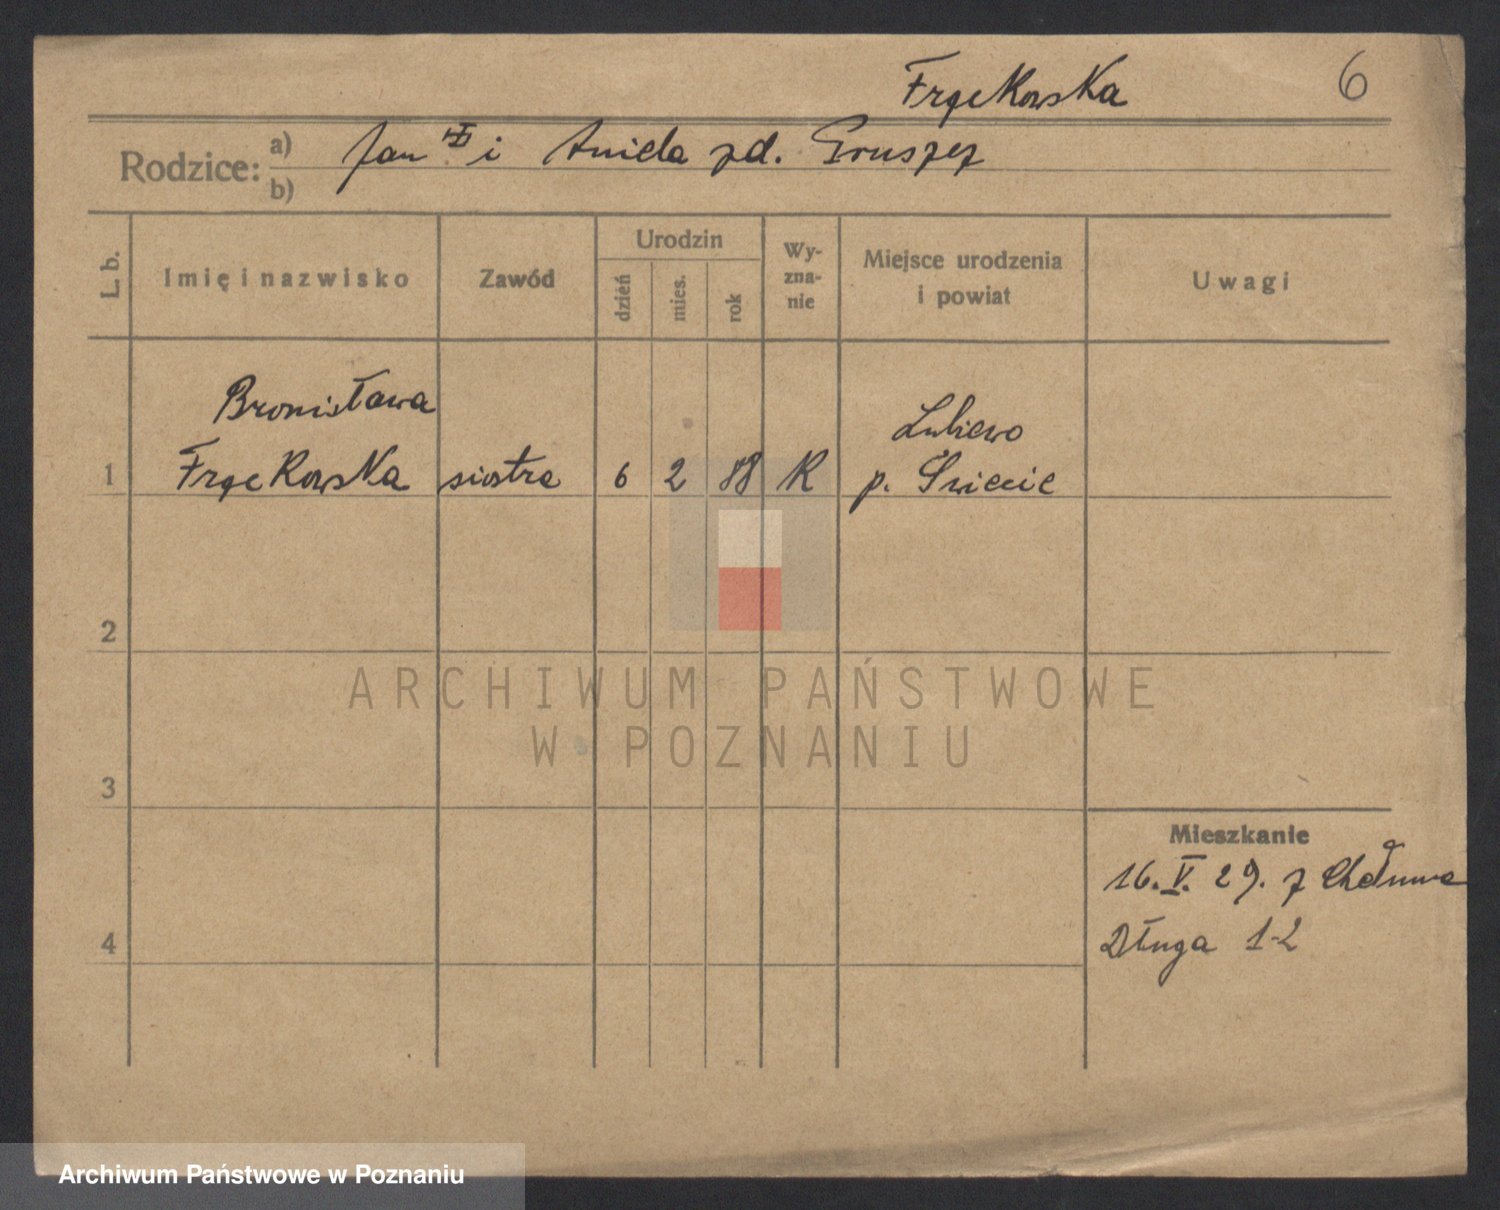 Frąckowska 6
Rodzice: a) Jan i Aniela zd. Gruszcz
b)
L. b. Imię i nazwisko Zawód Urodzin dzień mies. rok Wy-zna-nie Miejsce urodzenia i powiat Uwagi
Bronisława Lubiewo
1 Frąckowska siostra 6 2 88 K p. Świecie
2
ARCHIWUM PAŃSTWOWE
W POZNANIU
3
Mieszkanie
16. V. 29. z Chełmna
4 Długa 1-2
Archiwum Państwowe w Poznaniu